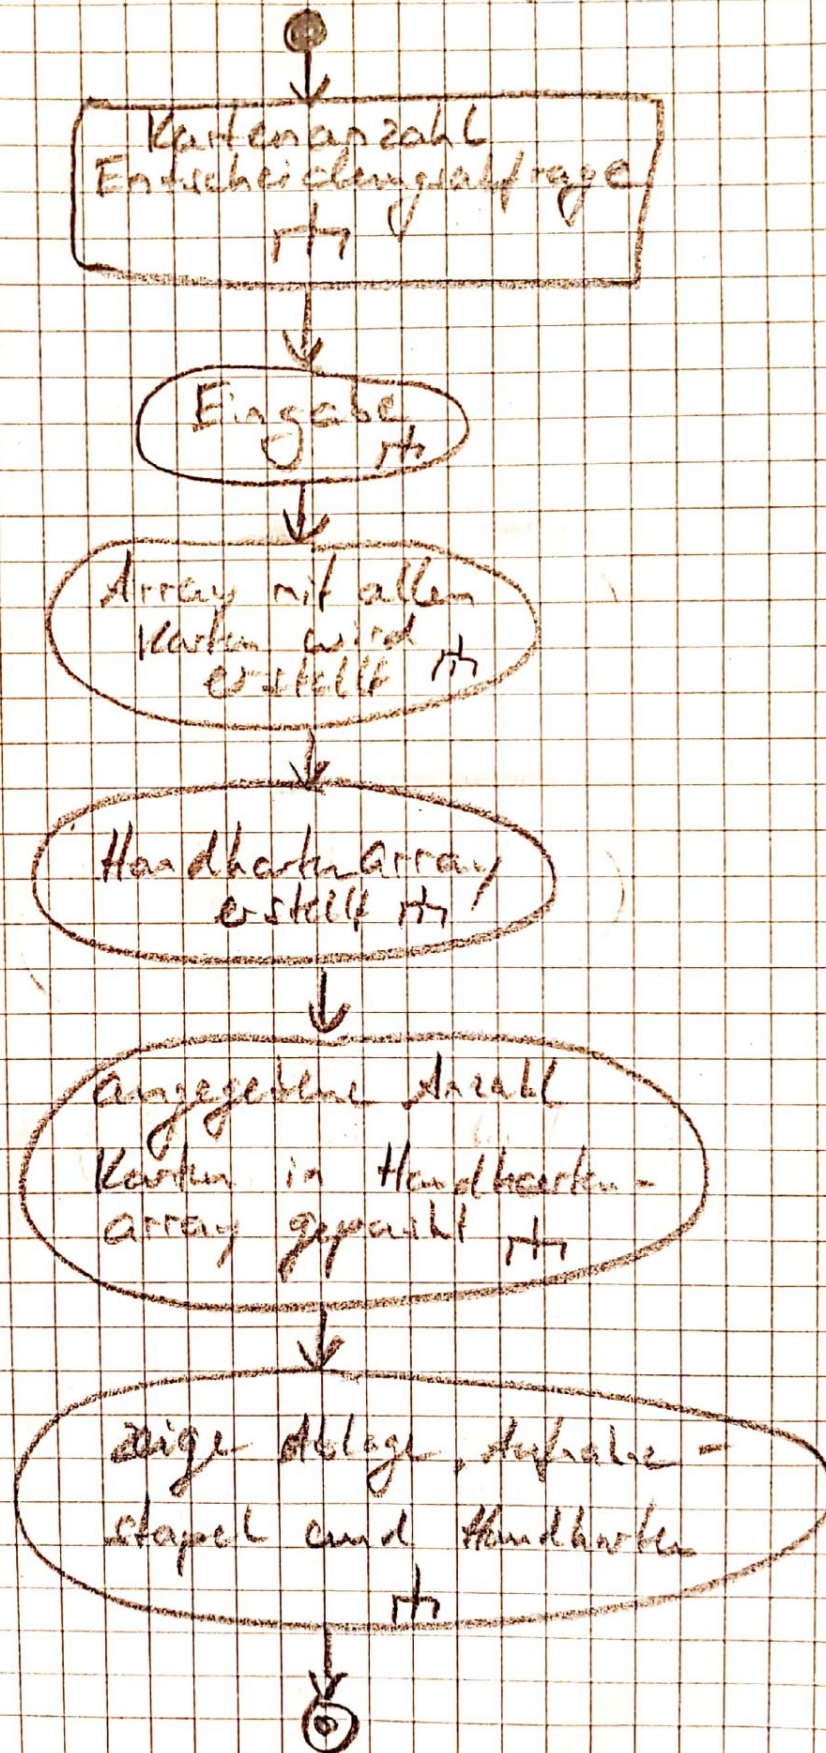 Kartenanzahl
Entscheidungsabfrage
Eingabe
Array mit allen
Karten wird
erstellt
Handkartenarray
erstellt
angegebene Anzahl
Karten in Handkarten-
array gepackt
zeige Ablage, Aufnahme-
stapel und Handkarten